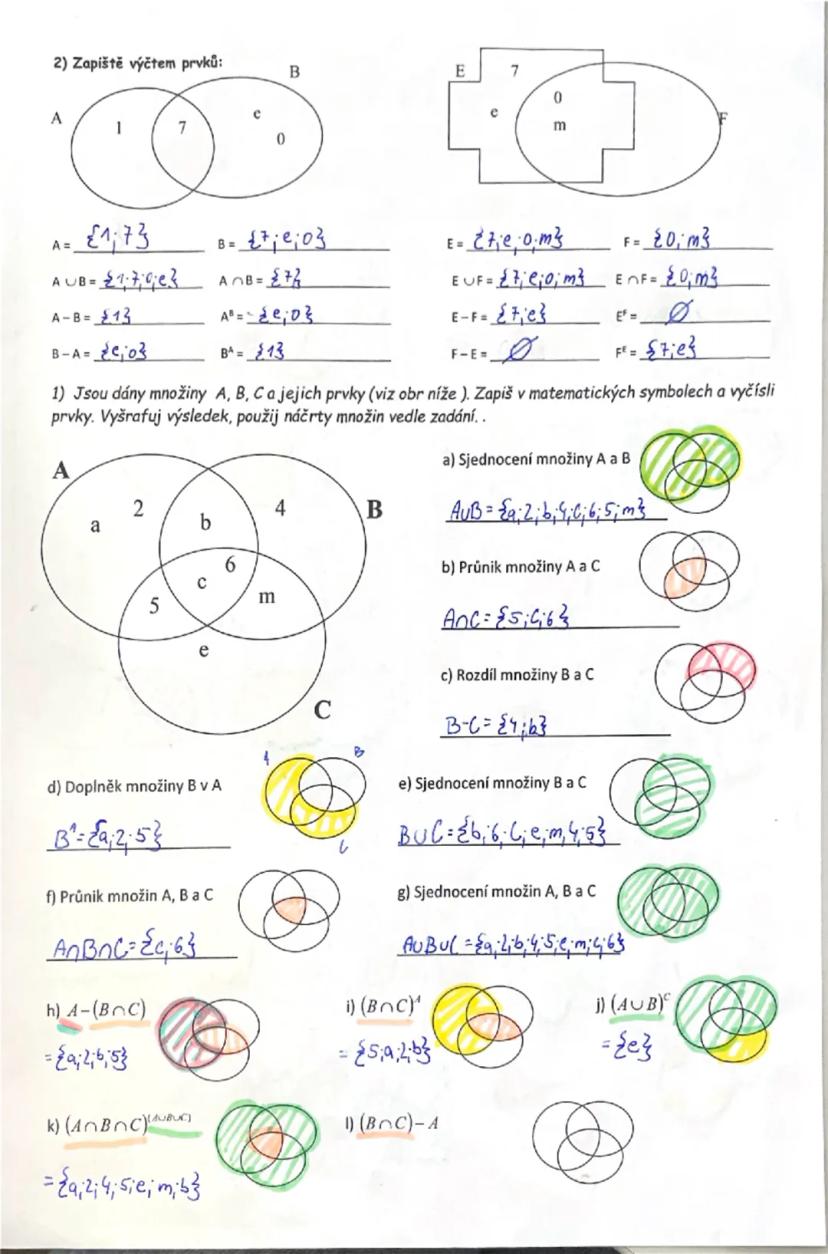 2) Zapiště výčtem prvků:
A B 1 7 e 0
E 7 0 e m F
A = {1;7} B = {7;e;0} E = {7;e;0;m} F = {0;m}
A ∪ B = {1;7;0;e} A ∩ B = {7} E ∪ F = {7;e;0;m} E ∩ F = {0;m}
A – B = {1} Aᴮ = {e;0} E – F = {7;e} Eᶠ = ∅
B – A = {e;0} Bᴬ = {1} F – E = ∅ Fᴱ = {7;e}
1) Jsou dány množiny A, B, C a jejich prvky (viz obr níže ). Zapiš v matematických symbolech a vyčísli
prvky. Vyšrafuj výsledek, použij náčrty množin vedle zadání. .
A
a 2 b 4 B
6
c
5 m
e
C
a) Sjednocení množiny A a B
A∪B = {a;2;b;4;c;6;5;m}
b) Průnik množiny A a C
A∩C = {5;c;6}
c) Rozdíl množiny B a C
B-C = {4;b}
d) Doplněk množiny B v A
A B C
Bᴬ = {a;2;5}
e) Sjednocení množiny B a C
B∪C = {b;6;c;e;m,4;5}
f) Průnik množin A, B a C
A∩B∩C = {c;6}
g) Sjednocení množin A, B a C
A∪B∪C = {a;2;b;4;5;e;m;c;6}
h) A – (B ∩ C)
= {a;2;b;5}
i) (B ∩ C)ᴬ
= {5;a;2;b}
j) (A ∪ B)ᶜ
= {e}
k) (A ∩ B ∩ C)⁽ᴬ∪ᴮ∪ᶜ⁾
= {a;2;4;5;e;m;b}
l) (B ∩ C) – A